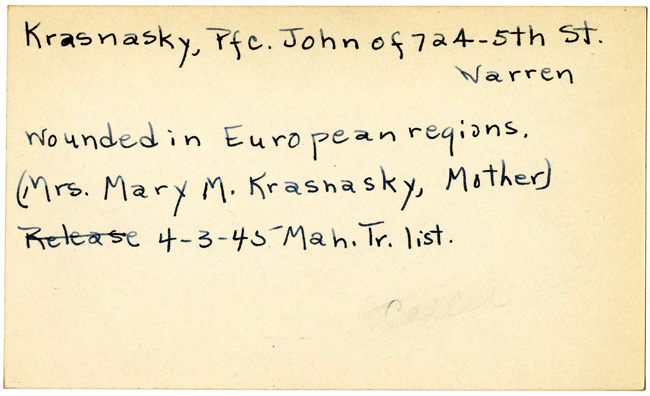 Krasnasky, Pfc. John of 724-5th St.
Warren
wounded in European regions.
(Mrs. Mary M. Krasnasky, Mother)
Release 4-3-45 Mah. Tr. list.